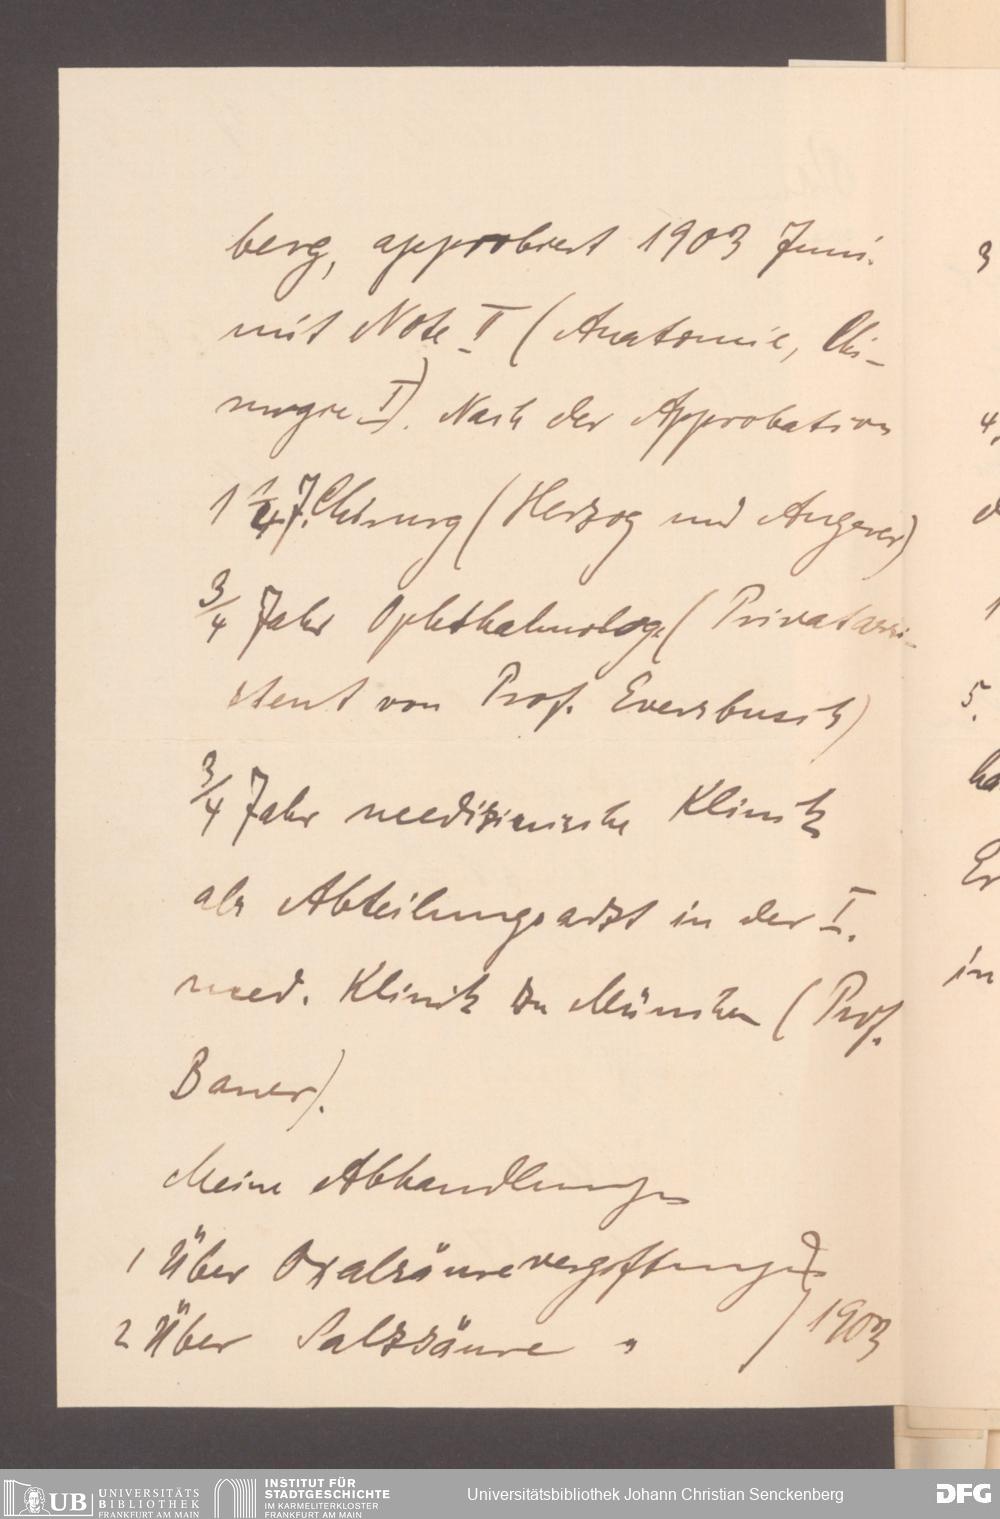 berg, approbiert 1903 Juni.
mit Note II (Anatomie, Chi-
rurgie I). Nach der Approbation
1 1/4 J. Chirurg (Herzog und Angerer)
3/4 Jahr Ophthalmolog (Privatassi-
stent von Prof. Eversbusch)
3/4 Jahr medizinische Klinik
als Abteilungsarzt in der I.
med. Klinik zu München (Prof.
Bauer).
Meine Abhandlungen
1 Über Oxalsäurevergiftungen
2 Über Salzsäure " } 1903
3
4,
5.
Er
in
UB UNIVERSITÄTS
BIBLIOTHEK
FRANKFURT AM MAIN
INSTITUT FÜR
STADTGESCHICHTE
IM KARMELITERKLOSTER
FRANKFURT AM MAIN
Universitätsbibliothek Johann Christian Senckenberg
DFG